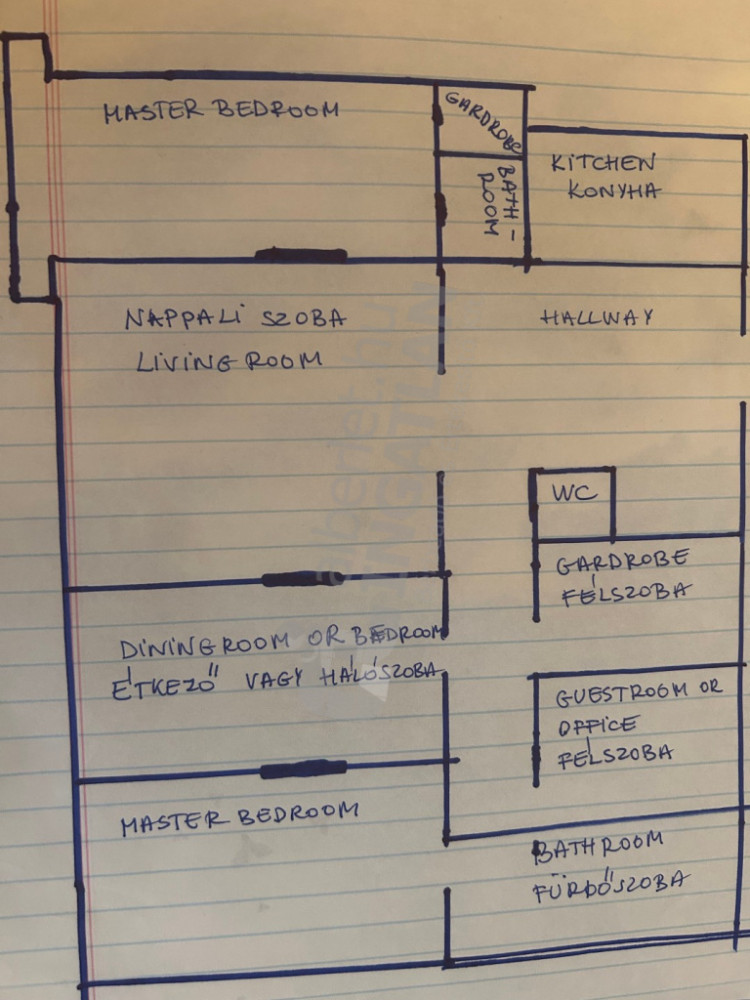 MASTER BEDROOM
GARDROBE
BATH-
ROOM
KITCHEN
KONYHA
NAPPALI SZOBA
LIVING ROOM
HALLWAY
WC
GARDROBE
FÉLSZOBA
DINING ROOM OR BEDROOM
ÉTKEZŐ VAGY HÁLÓSZOBA
GUESTROOM OR
OFFICE
FÉLSZOBA
MASTER BEDROOM
BATHROOM
FÜRDŐSZOBA
alberlet.hu
INGATLAN